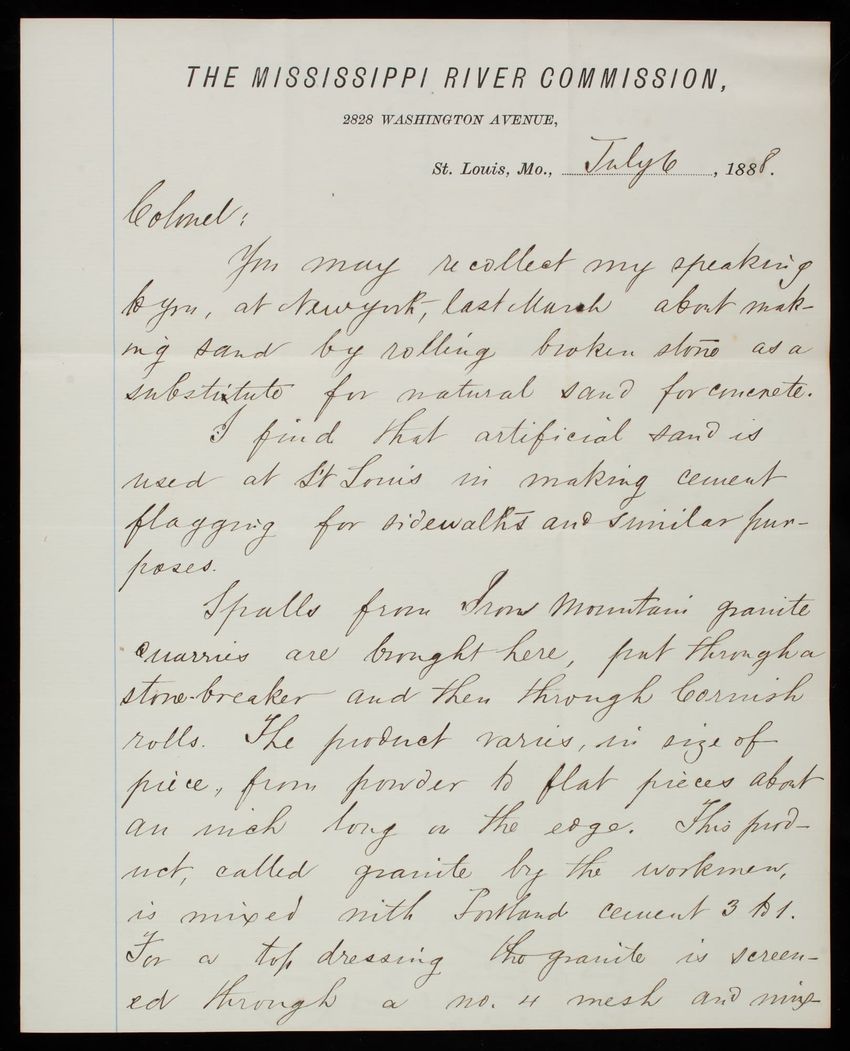 THE MISSISSIPPI RIVER COMMISSION,
2828 WASHINGTON AVENUE,
St. Louis, Mo., July 6, 1888.
Colonel:
You may recollect my speaking
to you, at New York, last March about mak-
ing sand by rolling broken stone as a
substitute for natural sand for concrete.
I find that artificial sand is
used at St Louis in making cement
flagging for sidewalks and similar pur-
poses.
Spalls from Iron Mountain granite
quarries are brought here, put through a
stone-breaker and then through Cornish
rolls. The product varies, in size of
piece, from powder to flat pieces about
an inch long on the edge. This prod-
uct, called granite by the workmen,
is mixed with Portland cement 3 to 1.
For a top dressing the granite is screen-
ed through a no. 4 mesh and mix-